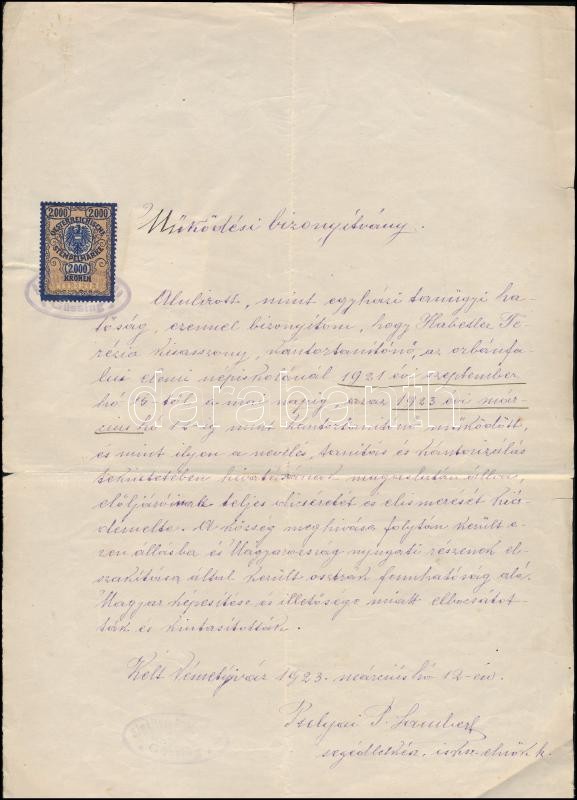 2000 2000
OESTERREICHISCHE
STEMPELMARKE
2000
KRONEN
Működési bizonyítvány.
Alulirott, mint egyházi tanügyi ha-
tóság, ezennel bizonyítom, hogy Habetler Te-
rézia kisasszony, kántortanítónő, az orbánfa-
lusi elemi népiskolánál 1921 évi szeptember
hó 6-tól a mai napig, azaz 1923 évi már-
cius hó 12-ig mint kántortanítónő működött,
és mint ilyen a nevelés, tanítás és kántorizálás
tekintetében hivatásának magaslatán állva,
elöljáróinak teljes dicséretét és elismerését kiér-
demelte. A község meghivása folytán került e-
zen állásba és Magyarország nyugati részének el-
szakítása által került osztrák fennhatóság alá.
Magyar képesítése és illetősége miatt elbocsátot-
ták és kiutasították.
Kelt Németújvár 1923. március hó 12-én.
P. Lambert
segédlelkész, isksz. elnök h.
darabanth